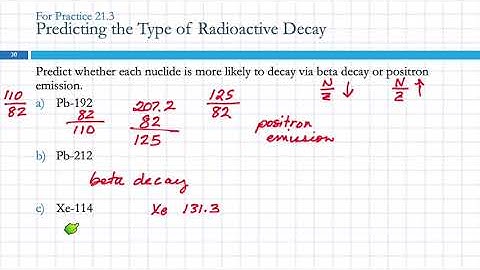 For Practice 21.3
Predicting the Type of Radioactive Decay
Predict whether each nuclide is more likely to decay via beta decay or positron
emission.
N/Z ↓ N/Z ↑
110/82
a) Pb-192 207.2 125/82
82 82
110 125
positron
emission
b) Pb-212
beta decay
c) Xe-114 Xe 131.3